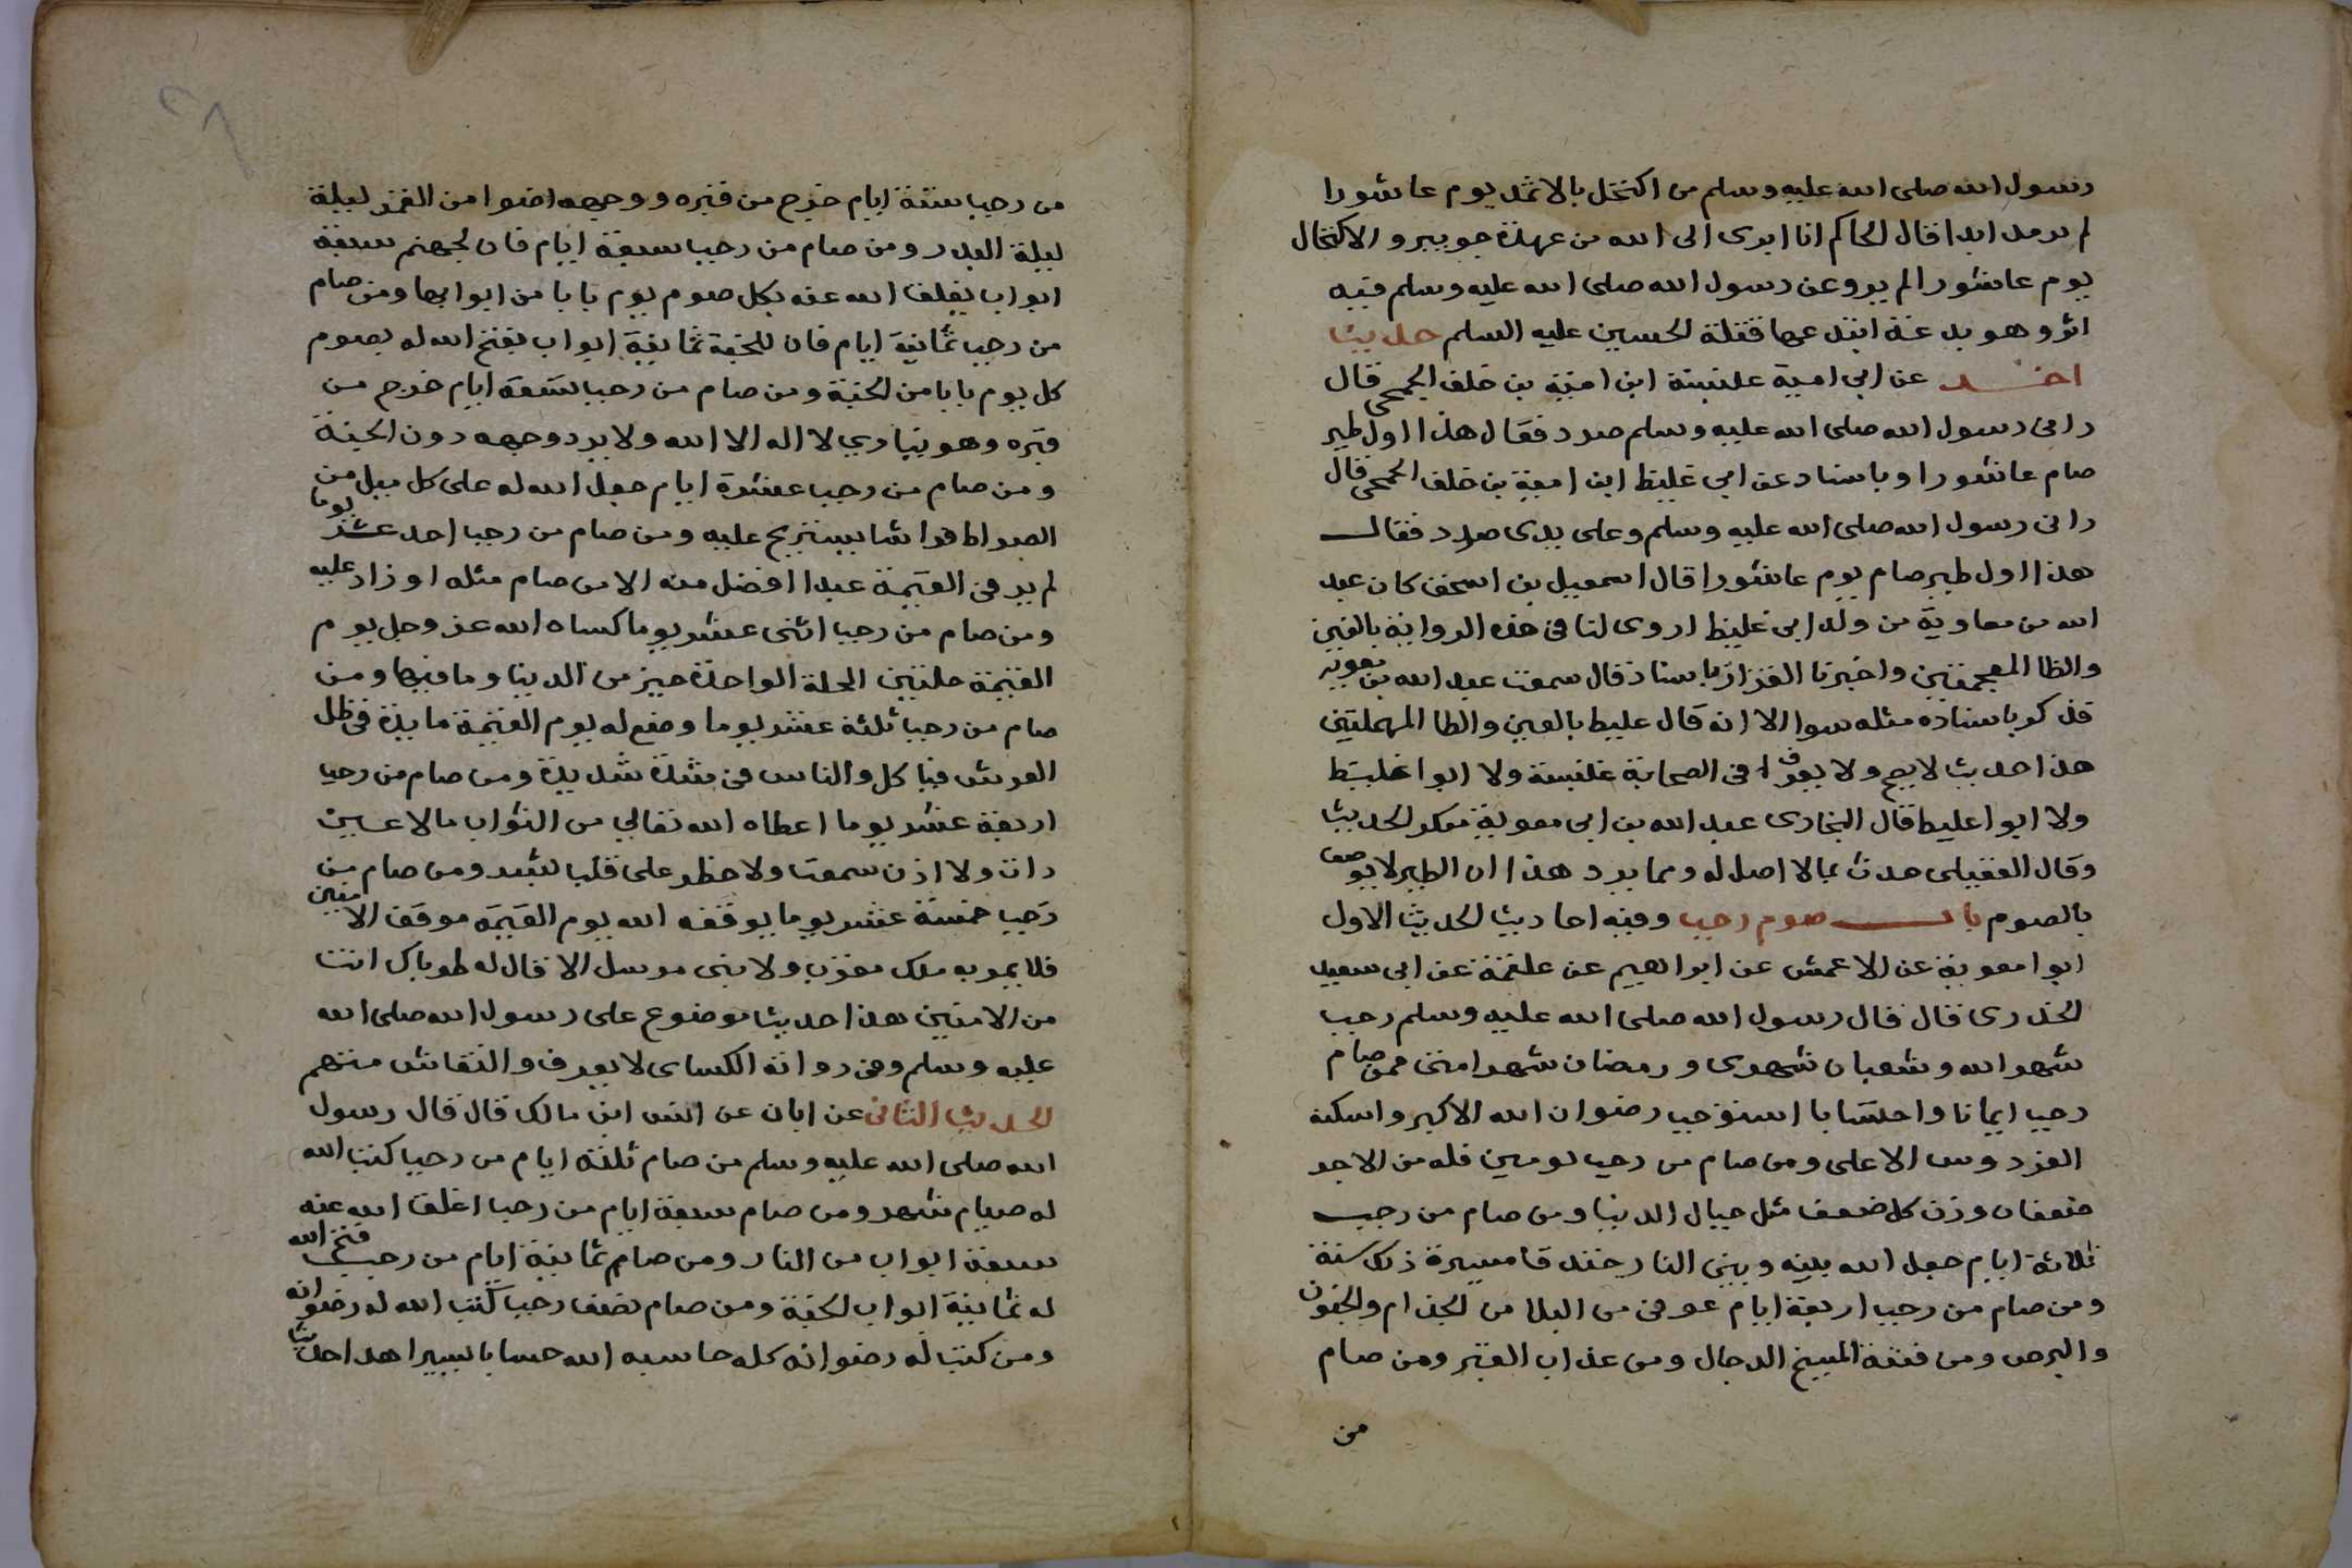 رسول الله صلى الله عليه وسلم من اكتحل بالاثمد يوم عاشورا
لم يرمد ابدا قال الحاكم انا ابرى الى الله من عهدة جويبر والاكتحال
يوم عاشورا لم يرو عن رسول الله صلى الله عليه وسلم فيه
اثر وهو بدعة ابتدعها قتلة الحسين عليه السلم حديث
اخر عن ابي امية علنبسة ابن امية بن خلف الجمحي قال
رانى رسول الله صلى الله عليه وسلم صرد فقال هذا اول طير
صام عاشورا وباسناد عن ابي غليظ ابن امية بن خلف الجمحي قال
رانى رسول الله صلى الله عليه وسلم وعلى يدى صرد فقال
هذا اول طير صام يوم عاشورا قال اسمعيل بن اسحق كان عبد
الله بن معاوية من ولد ابي غليظ اروى لنا في هذه الرواية بالغين
والظا المعجمتين واخبرنا القزاز باسناد قال سمعت عبد الله بن معوية
فذكر باسناده مثله سوا الا انه قال عليط بالعين والطا المهملتين
هذا حديث لا يصح ولا يعرف في الصحابة علنبسة ولا ابو اغليظ
ولا ابو اعليط قال البخارى عبد الله بن ابي معوية منكر الحديث
وقال العقيلى حدث بما لا اصل له ومما يرد هذا ان الطير لا يوصف
بالصوم باب صوم رجب وفيه احاديث الحديث الاول
ابو امعوية عن الاعمش عن ابراهيم عن علقمة عن ابي سعيد
الخدرى قال قال رسول الله صلى الله عليه وسلم رجب
شهر الله وشعبان شهرى ورمضان شهر امتى فمن صام
رجب ايمانا واحتسابا استوجب رضوان الله الاكبر واسكنه
الفردوس الاعلى ومن صام من رجب يومين فله من الاجر
ضعفان وزن كل ضعف مثل جبال الدنيا ومن صام من رجب
ثلاثة ايام جعل الله بينه وبين النار خندقا مسيرة ذلك سنة
ومن صام من رجب اربعة ايام عوفى من البلا من الجذام والجنون
والبرص ومن فتنة المسيخ الدجال ومن عذاب القبر ومن صام
من
من رجب ستة ايام خرج من قبره ووجهه اضوا من القمر ليلة
ليلة البدر ومن صام من رجب سبعة ايام فان لجهنم سبعة
ابواب يغلق الله عنه بكل صوم يوم بابا من ابوابها ومن صام
من رجب ثمانية ايام فان للجنة ثمانية ابواب يفتح الله له بصوم
كل يوم بابا من الجنة ومن صام من رجب تسعة ايام خرج من
قبره وهو ينادي لا اله الا الله ولا يرد وجهه دون الجنة
ومن صام من رجب عشرة ايام جعل الله له على كل ميل من
الصراط فراشا يستريح عليه ومن صام من رجب احد عشر يوما
لم ير في القيمة عبدا افضل منه الا من صام مثله او زاد عليه
ومن صام من رجب اثنى عشر يوما كساه الله عز وجل يوم
القيمة حلتين الحلة الواحدة خير من الدنيا وما فيها ومن
صام من رجب ثلثة عشر يوما وضع له يوم القيمة مايدة في ظل
العرش فياكل والناس في شدة شديدة ومن صام من رجب
اربعة عشر يوما اعطاه الله تعالى من الثواب مالا عين
رات ولا اذن سمعت ولا خطر على قلب بشر ومن صام من
رجب خمسة عشر يوما يوقفه الله يوم القيمه موقف الامنين
فلا يمر به ملك مقرب ولا نبى مرسل الا قال له طوباك انت
من الامنين هذا حديث موضوع على رسول الله صلى الله
عليه وسلم وفى رواته الكساى لا يعرف والنقاش متهم
الحديث الثانى عن ابان عن انس ابن مالك قال قال رسول
الله صلى الله عليه وسلم من صام ثلثه ايام من رجب كتب الله
له صيام شهر ومن صام سبعة ايام من رجب اغلق الله عنه
سبعة ابواب من النار ومن صام ثمانية ايام من رجب فتح الله
له ثمانية ابواب الجنة ومن صام نصف رجب كتب الله له رضوانه
ومن كتب له رضوانه كله حاسبه الله حسابا يسيرا هذا حديث